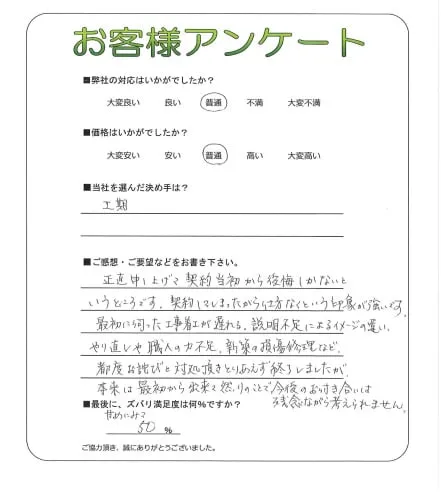 お客様アンケート
■弊社の対応はいかがでしたか？
大変良い 良い 普通 不満 大変不満
■価格はいかがでしたか？
大変安い 安い 普通 高い 大変高い
■当社を選んだ決め手は？
工期
■ご感想・ご要望などをお書き下さい。
正直申し上げて契約当初から後悔しかないと
いうところです。契約してしまったから仕方なくという印象が強いです。
最初に伺った工事着工が遅れる、説明不足によるイメージの違い、
やり直しや職人の力不足、新築の損傷修理など、
都度お詫びと対処頂きとりあえず終了しましたが、
本来は最初から出来て然りのことで今後のお付き合いは
残念ながら考えられません。
■最後に、ズバリ満足度は何％ですか？
甘めにみて
50 %
ご協力頂き、誠にありがとうございました。